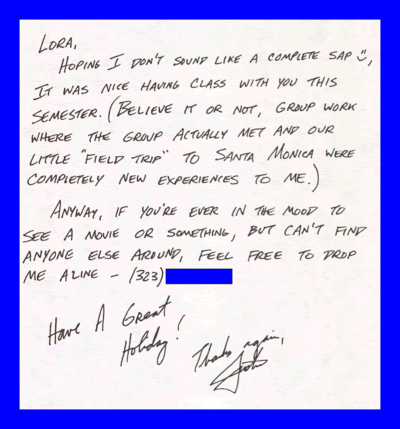 LORA,
HOPING I DON'T SOUND LIKE A COMPLETE SAP :),
IT WAS NICE HAVING CLASS WITH YOU THIS
SEMESTER. (BELIEVE IT OR NOT, GROUP WORK
WHERE THE GROUP ACTUALLY MET AND OUR
LITTLE "FIELD TRIP" TO SANTA MONICA WERE
COMPLETELY NEW EXPERIENCES TO ME.)
ANYWAY, IF YOU'RE EVER IN THE MOOD TO
SEE A MOVIE OR SOMETHING, BUT CAN'T FIND
ANYONE ELSE AROUND, FEEL FREE TO DROP
ME A LINE – (323)
Have A Great
Holiday!
Thanks again,